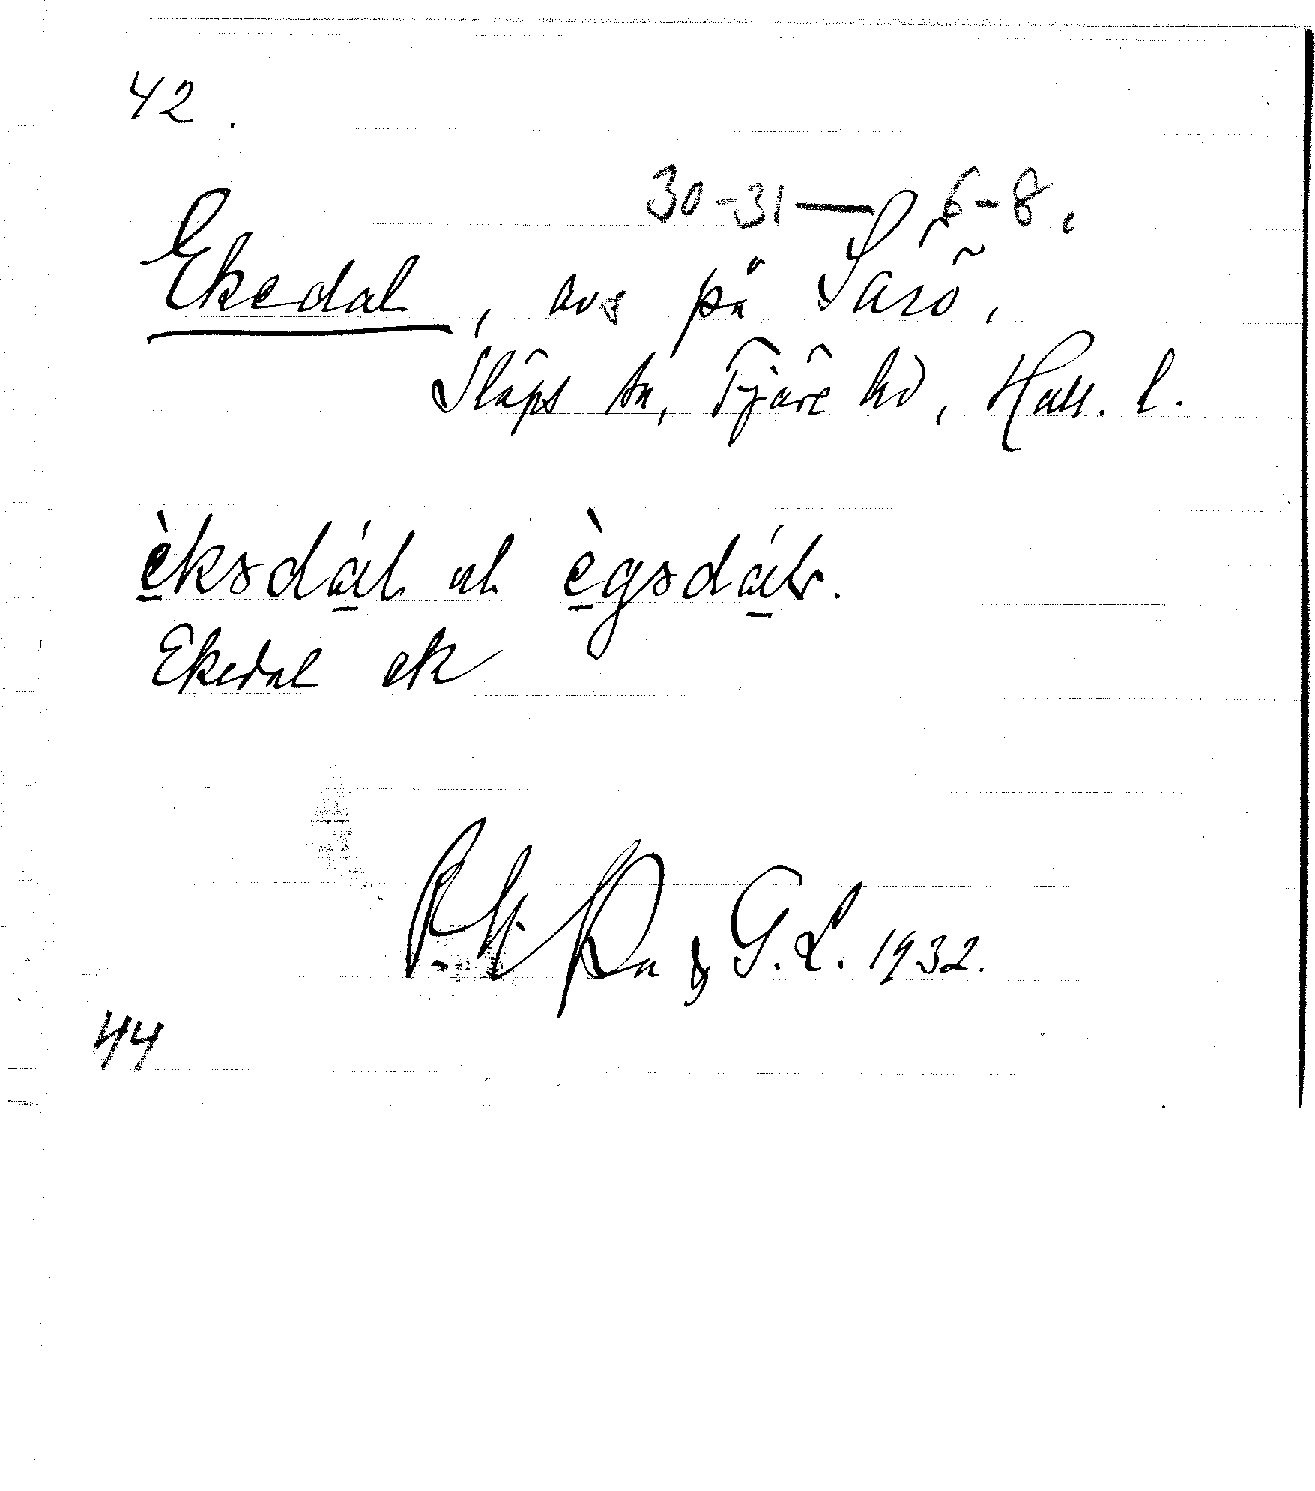 42.
30-31 — 6-8.
Ekedal, avs på Särö,
Släps sn, Fjäre hd, Hall. l.
è̱ksdá̱l. ul. è̱gsdá̱lr.
Ekedal ek
& G.L. 1932.
44